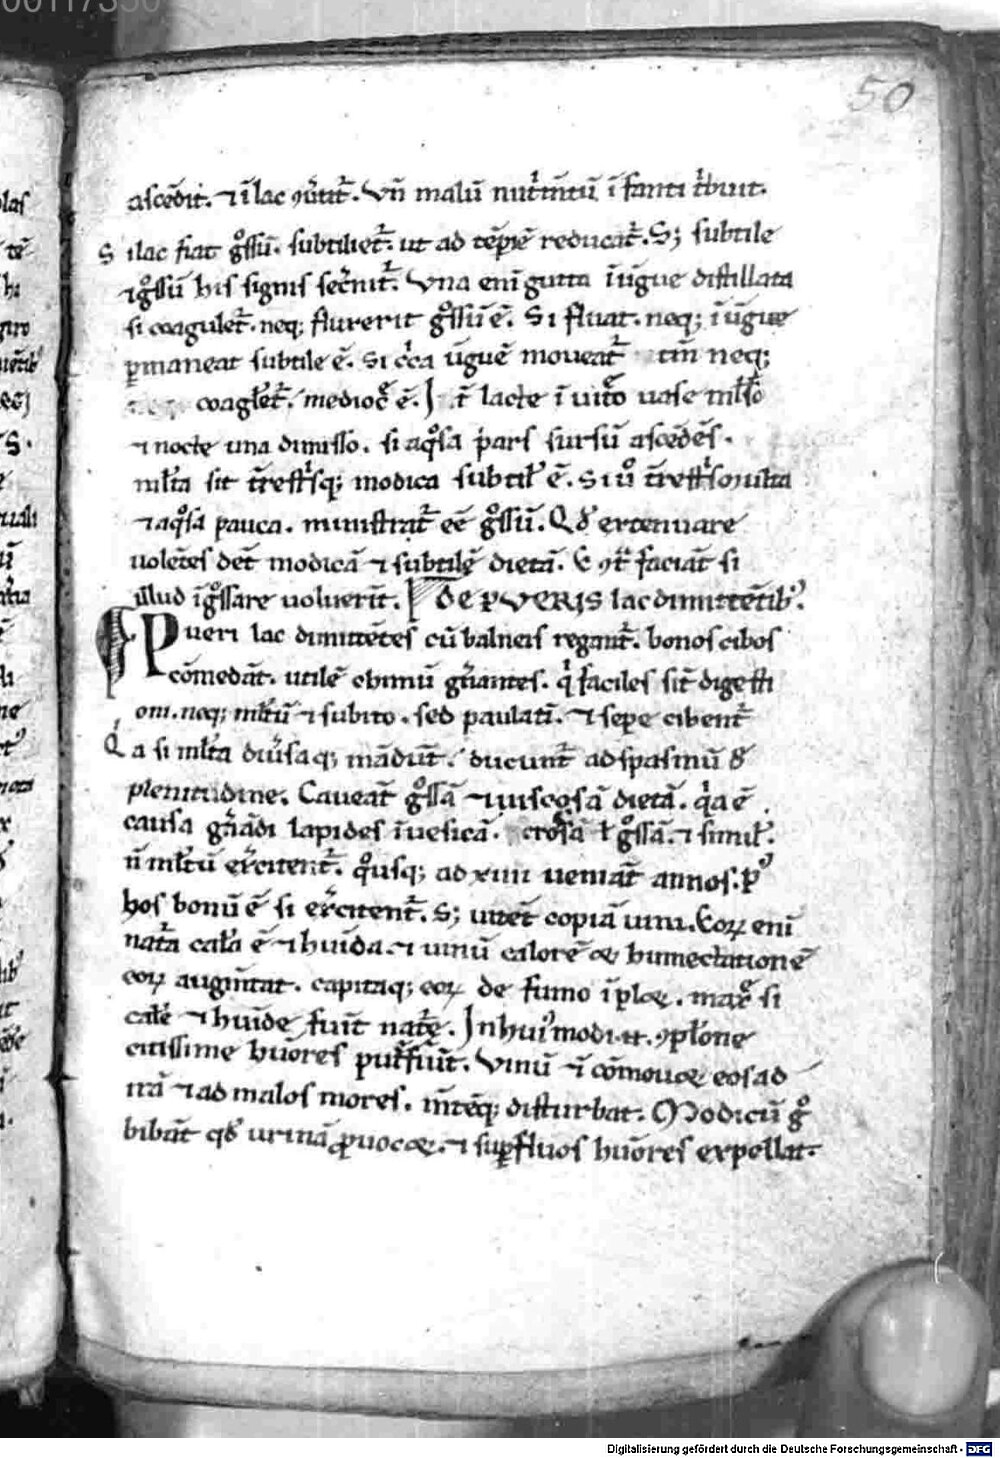 50
ascēdit. ⁊ ī lac ꝯu̾tit̄. Vn̄ malū nut̾m̄tū īfanti t͛buit.
Si lac fiat gͦssū. subtiliet̄. ut ad tēꝑiē reducat̄. S; subtile
⁊ gͦssū his signis sec̾nit̄. Vna enī gutta ī ūgue distillata
si coagulet̄. neq; fluxerit gͦssū ē. Si fluat. neq; ī ūgue
ꝑmaneat subtile ē. Si c͛ca ūguē moueat̄ tm̄ neq;
coagl̄et̄. medioc̾ ē. lacte ī uit͛o uase
⁊ nocte una dimisso. si aqͦsa pars sursū ascēdēs.
ml̄ta sit t̄rest͛sq; modica subtil̄ ē. Si uͦ t̄rest͛s multa
⁊ aqͦsa pauca. minist̾t̄ eē gͦssū. Qd̄ extenuare
uolētes dēt modicā ⁊ subtilē dietā. E ꝯt̾ faciāt si
illud īgͦssare uoluerit̄. De pueris lac dimittētib᾽.
Pueri lac dimittētes cū balneis regant̄. bonos cibos
cōmedāt. utilē chimū gn̾antes. q͛ faciles sīt digesti
oni. neq; ml̄tū ⁊ subito. sed paulatī. ⁊ sepe cibent̄
Q͛a si ml̄ta diu̾saq; mādūt. ducunt̄ ad spasmū d̄
plenitudine. Caueāt gͦssā ⁊ uiscosā dietā. q͛a ē
causa gn̾ādi lapides ī uesica. gͦssā. ⁊ simil̄.
n̄ ml̄tū ex̾citent̄. qͦusq; ad xiiii ueniāt annos. P᾽
hos bonū ē si ex̾citent̄. S; uitēt copiā uini. Eoꝝ enī
nat̾a cal̄a ē ⁊ huīda. ⁊ uinū calorē ⁊ humectationē
eoꝝ augm̄tat. capitaq; eoꝝ de fumo īplet. max̾ si
cal̄e ⁊ huīde fuīt nat̾e. In hui᾽modi ꝯpl̄one
citissime hūores put̾fiūt. Vinū cōmouet eos ad
irā ⁊ ad malos mores. m̄teq; disturbat. Modicū gͦ
bibāt qd̄ urinā ꝓuocet. ⁊ suꝑfluos hūores expellat.
Digitalisierung gefördert durch die Deutsche Forschungsgemeinschaft - DFG